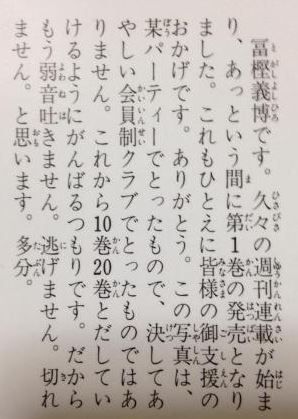 冨樫義博です。久々の週刊連載が始ま
り、あっという間に第1巻の発売となり
ました。これもひとえに皆様の御支援の
おかげです。ありがとう。この写真は、
某パーティーでとったもので、決してあ
やしい会員制クラブでとったものではあ
りません。これから10巻20巻とだしてい
けるようにがんばるつもりです。だから
もう弱音吐きません。逃げません。切れ
ません。と思います。多分。